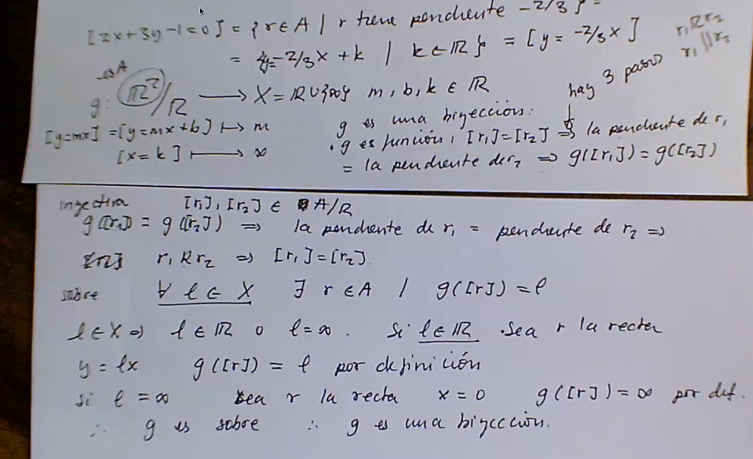 [2x+3y-1=0] = { r ∈ A | r tiene pendiente -2/3 } =
= { y=-2/3x + k | k ∈ ℝ } = [y = -2/3x]
r₁ R r₂
r₁ // r₂
hay 3 pasos
es A
g: ℝ²/R → X = ℝ ∪ {∞} m, b, k ∈ ℝ
[y=mx] = [y=mx+b] ↦ m g es una biyección:
[x=k] ↦ ∞ · g es función: [r₁]=[r₂] ⇒ la pendiente de r₁
= la pendiente de r₂ ⇒ g([r₁]) = g([r₂])
inyectiva [r₁], [r₂] ∈ A/R
g([r₁]) = g([r₂]) ⇒ la pendiente de r₁ = pendiente de r₂ ⇒
r₁ R r₂ ⇒ [r₁]=[r₂].
sobre ∀ l ∈ X ∃ r ∈ A / g([r]) = l
l ∈ X ⇒ l ∈ ℝ o l=∞. Si l ∈ ℝ · Sea r la recta
y = lx g([r]) = l por definición
si l = ∞ sea r la recta x=0 g([r]) = ∞ por def.
∴ g es sobre ∴ g es una biyección.